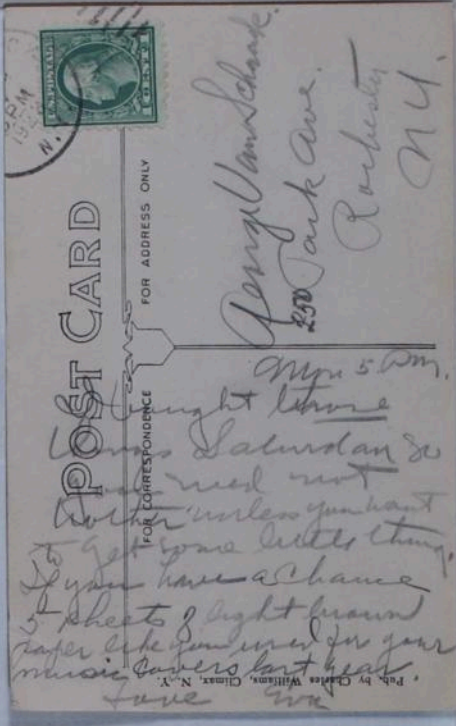 PM
19
N.
U.S. POSTAGE
1 CENT 1
POST CARD
FOR ADDRESS ONLY
FOR CORRESPONDENCE
George Van Schaick.
250 Park Ave.
Rochester
N Y.
Mon 5 P.M.
bought
Xmas Saturday so
you need not
bother unless you want
to get some little thing.
If you have a chance
5 sheets of light brown
paper like you used for your
music covers last year.
Love Eva
Pub. by Charles Williams, Climax, N. Y.